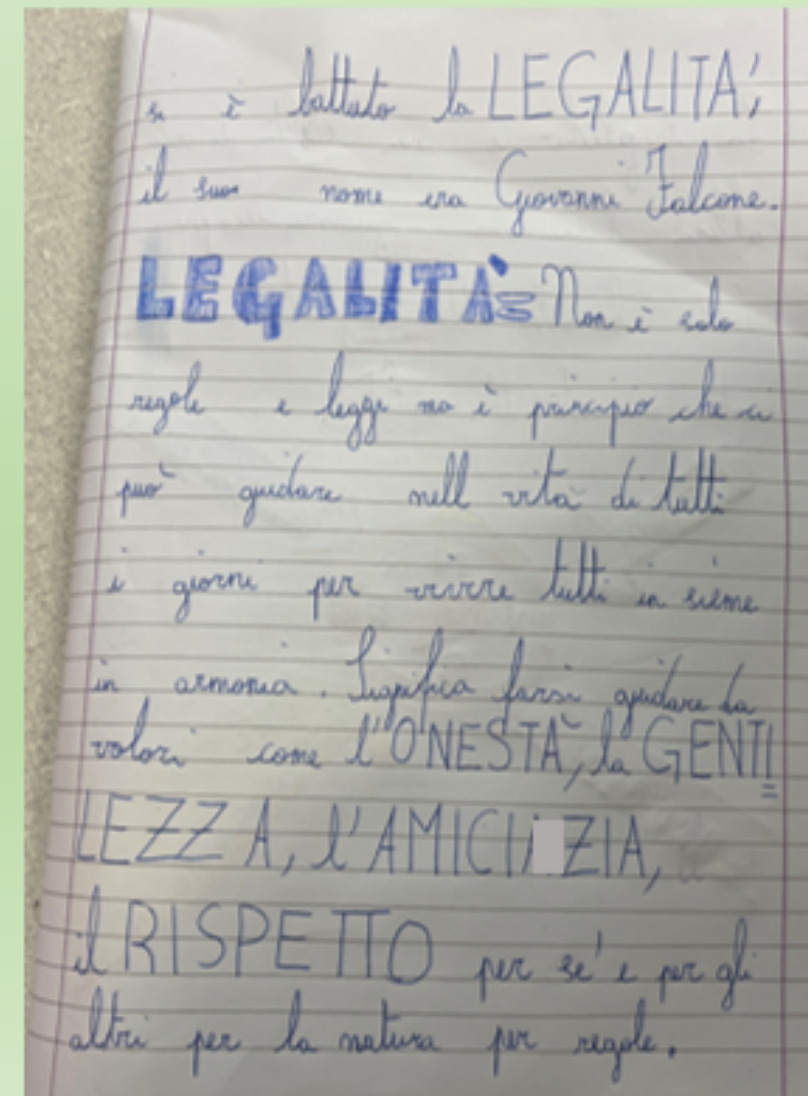 si è battuto la LEGALITA',
il suo nome era Giovanni Falcone.
LEGALITÀ= Non è solo
regole e leggi ma è principio che ci
può guidare nell vita di tutti
i giorni per vivere tutti in sieme
in armonia. Significa farsi guidare da
valori come l'ONESTÀ, la GENTI
LEZZA, l'AMICI ZIA,
il RISPETTO per se' e per gli
altri per la natura per regole.